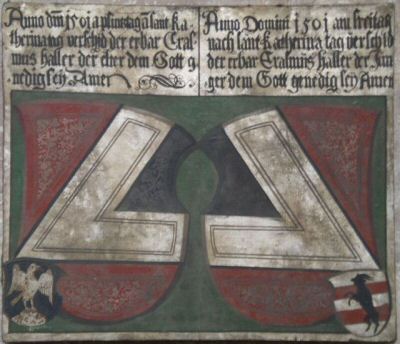 Anno dm̄ 1503 a pfincztag an sant Ka-
therina tag verschid der erbar Eras-
mus haller der elter dem Gott g-
nedig sey Amen
Anno Domini 1503 am freitag
nach sant katherina tag verschid
der erbar Erasmus haller der Jun-
ger dem Gott genedig sey Amen